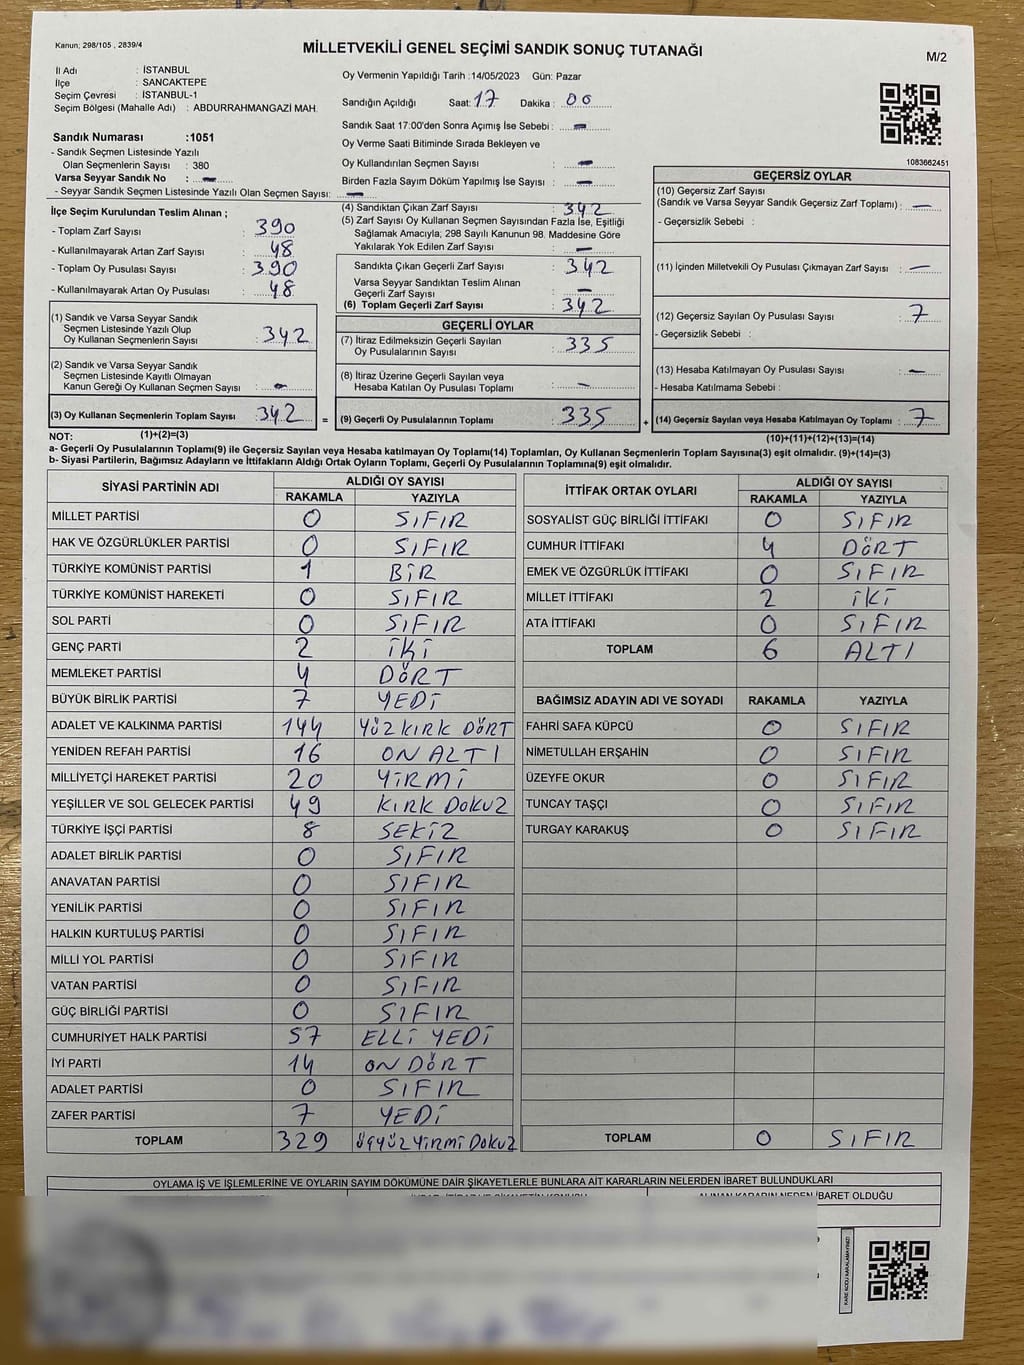 Kanun; 298/105 , 2839/4
MİLLETVEKİLİ GENEL SEÇİMİ SANDIK SONUÇ TUTANAĞI
M/2
İl Adı : İSTANBUL
İlçe : SANCAKTEPE
Seçim Çevresi : İSTANBUL-1
Seçim Bölgesi (Mahalle Adı) : ABDURRAHMANGAZİ MAH.
Sandık Numarası :1051
- Sandık Seçmen Listesinde Yazılı
Olan Seçmenlerin Sayısı : 380
Varsa Seyyar Sandık No : —
- Seyyar Sandık Seçmen Listesinde Yazılı Olan Seçmen Sayısı: —
Oy Vermenin Yapıldığı Tarih :14/05/2023 Gün: Pazar
Sandığın Açıldığı Saat: 17 Dakika : 00
Sandık Saat 17:00'den Sonra Açımış İse Sebebi : —
Oy Verme Saati Bitiminde Sırada Bekleyen ve
Oy Kullandırılan Seçmen Sayısı : —
Birden Fazla Sayım Döküm Yapılmış İse Sayısı : —
1083662451
İlçe Seçim Kurulundan Teslim Alınan ;
- Toplam Zarf Sayısı : 390
- Kullanılmayarak Artan Zarf Sayısı : 48
- Toplam Oy Pusulası Sayısı : 390
- Kullanılmayarak Artan Oy Pusulası : 48
(1) Sandık ve Varsa Seyyar Sandık
Seçmen Listesinde Yazılı Olup
Oy Kullanan Seçmenlerin Sayısı : 342
(2) Sandık ve Varsa Seyyar Sandık
Seçmen Listesinde Kayıtlı Olmayan
Kanun Gereği Oy Kullanan Seçmen Sayısı : —
(3) Oy Kullanan Seçmenlerin Toplam Sayısı : 342
(1)+(2)=(3)
(4) Sandıktan Çıkan Zarf Sayısı : 342
(5) Zarf Sayısı Oy Kullanan Seçmen Sayısından Fazla İse, Eşitliği
Sağlamak Amacıyla; 298 Sayılı Kanunun 98. Maddesine Göre
Yakılarak Yok Edilen Zarf Sayısı : —
Sandıkta Çıkan Geçerli Zarf Sayısı : 342
Varsa Seyyar Sandıktan Teslim Alınan
Geçerli Zarf Sayısı : —
(6) Toplam Geçerli Zarf Sayısı : 342
GEÇERLİ OYLAR
(7) İtiraz Edilmeksizin Geçerli Sayılan
Oy Pusulalarının Sayısı : 335
(8) İtiraz Üzerine Geçerli Sayılan veya
Hesaba Katılan Oy Pusulası Toplamı : —
= (9) Geçerli Oy Pusulalarının Toplamı : 335 +
GEÇERSİZ OYLAR
(10) Geçersiz Zarf Sayısı
(Sandık ve Varsa Seyyar Sandık Geçersiz Zarf Toplamı) : —
- Geçersizlik Sebebi :
(11) İçinden Milletvekili Oy Pusulası Çıkmayan Zarf Sayısı : —
(12) Geçersiz Sayılan Oy Pusulası Sayısı : 7
- Geçersizlik Sebebi :
(13) Hesaba Katılmayan Oy Pusulası Sayısı : —
- Hesaba Katılmama Sebebi :
(14) Geçersiz Sayılan veya Hesaba Katılmayan Oy Toplamı : 7
(10)+(11)+(12)+(13)=(14)
NOT:
a- Geçerli Oy Pusulalarının Toplamı(9) ile Geçersiz Sayılan veya Hesaba katılmayan Oy Toplamı(14) Toplamları, Oy Kullanan Seçmenlerin Toplam Sayısına(3) eşit olmalıdır. (9)+(14)=(3)
b- Siyasi Partilerin, Bağımsız Adayların ve İttifakların Aldığı Ortak Oyların Toplamı, Geçerli Oy Pusulalarının Toplamına(9) eşit olmalıdır.
SİYASİ PARTİNİN ADI ALDIĞI OY SAYISI
RAKAMLA YAZIYLA
MİLLET PARTİSİ 0 SIFIR
HAK VE ÖZGÜRLÜKLER PARTİSİ 0 SIFIR
TÜRKİYE KOMÜNİST PARTİSİ 1 BİR
TÜRKİYE KOMÜNİST HAREKETİ 0 SIFIR
SOL PARTİ 0 SIFIR
GENÇ PARTİ 2 İKİ
MEMLEKET PARTİSİ 4 DÖRT
BÜYÜK BİRLİK PARTİSİ 7 YEDİ
ADALET VE KALKINMA PARTİSİ 144 YÜZ KIRK DÖRT
YENİDEN REFAH PARTİSİ 16 ON ALTI
MİLLİYETÇİ HAREKET PARTİSİ 20 YİRMİ
YEŞİLLER VE SOL GELECEK PARTİSİ 49 KIRK DOKUZ
TÜRKİYE İŞÇİ PARTİSİ 8 SEKİZ
ADALET BİRLİK PARTİSİ 0 SIFIR
ANAVATAN PARTİSİ 0 SIFIR
YENİLİK PARTİSİ 0 SIFIR
HALKIN KURTULUŞ PARTİSİ 0 SIFIR
MİLLİ YOL PARTİSİ 0 SIFIR
VATAN PARTİSİ 0 SIFIR
GÜÇ BİRLİĞİ PARTİSİ 0 SIFIR
CUMHURİYET HALK PARTİSİ 57 ELLİ YEDİ
İYİ PARTİ 14 ON DÖRT
ADALET PARTİSİ 0 SIFIR
ZAFER PARTİSİ 7 YEDİ
TOPLAM 329 üçyüz Yirmi Dokuz
İTTİFAK ORTAK OYLARI ALDIĞI OY SAYISI
RAKAMLA YAZIYLA
SOSYALİST GÜÇ BİRLİĞİ İTTİFAKI 0 SIFIR
CUMHUR İTTİFAKI 4 DÖRT
EMEK VE ÖZGÜRLÜK İTTİFAKI 0 SIFIR
MİLLET İTTİFAKI 2 İKİ
ATA İTTİFAKI 0 SIFIR
TOPLAM 6 ALTI
BAĞIMSIZ ADAYIN ADI VE SOYADI RAKAMLA YAZIYLA
FAHRİ SAFA KÜPCÜ 0 SIFIR
NİMETULLAH ERŞAHİN 0 SIFIR
ÜZEYFE OKUR 0 SIFIR
TUNCAY TAŞÇI 0 SIFIR
TURGAY KARAKUŞ 0 SIFIR
TOPLAM 0 SIFIR
OYLAMA İŞ VE İŞLEMLERİNE VE OYLARIN SAYIM DÖKÜMÜNE DAİR ŞİKAYETLERLE BUNLARA AİT KARARLARIN NELERDEN İBARET BULUNDUKLARI
ALINAN KARARIN NEDEN İBARET OLDUĞU
KARE KODU KARALAMAYINIZ!